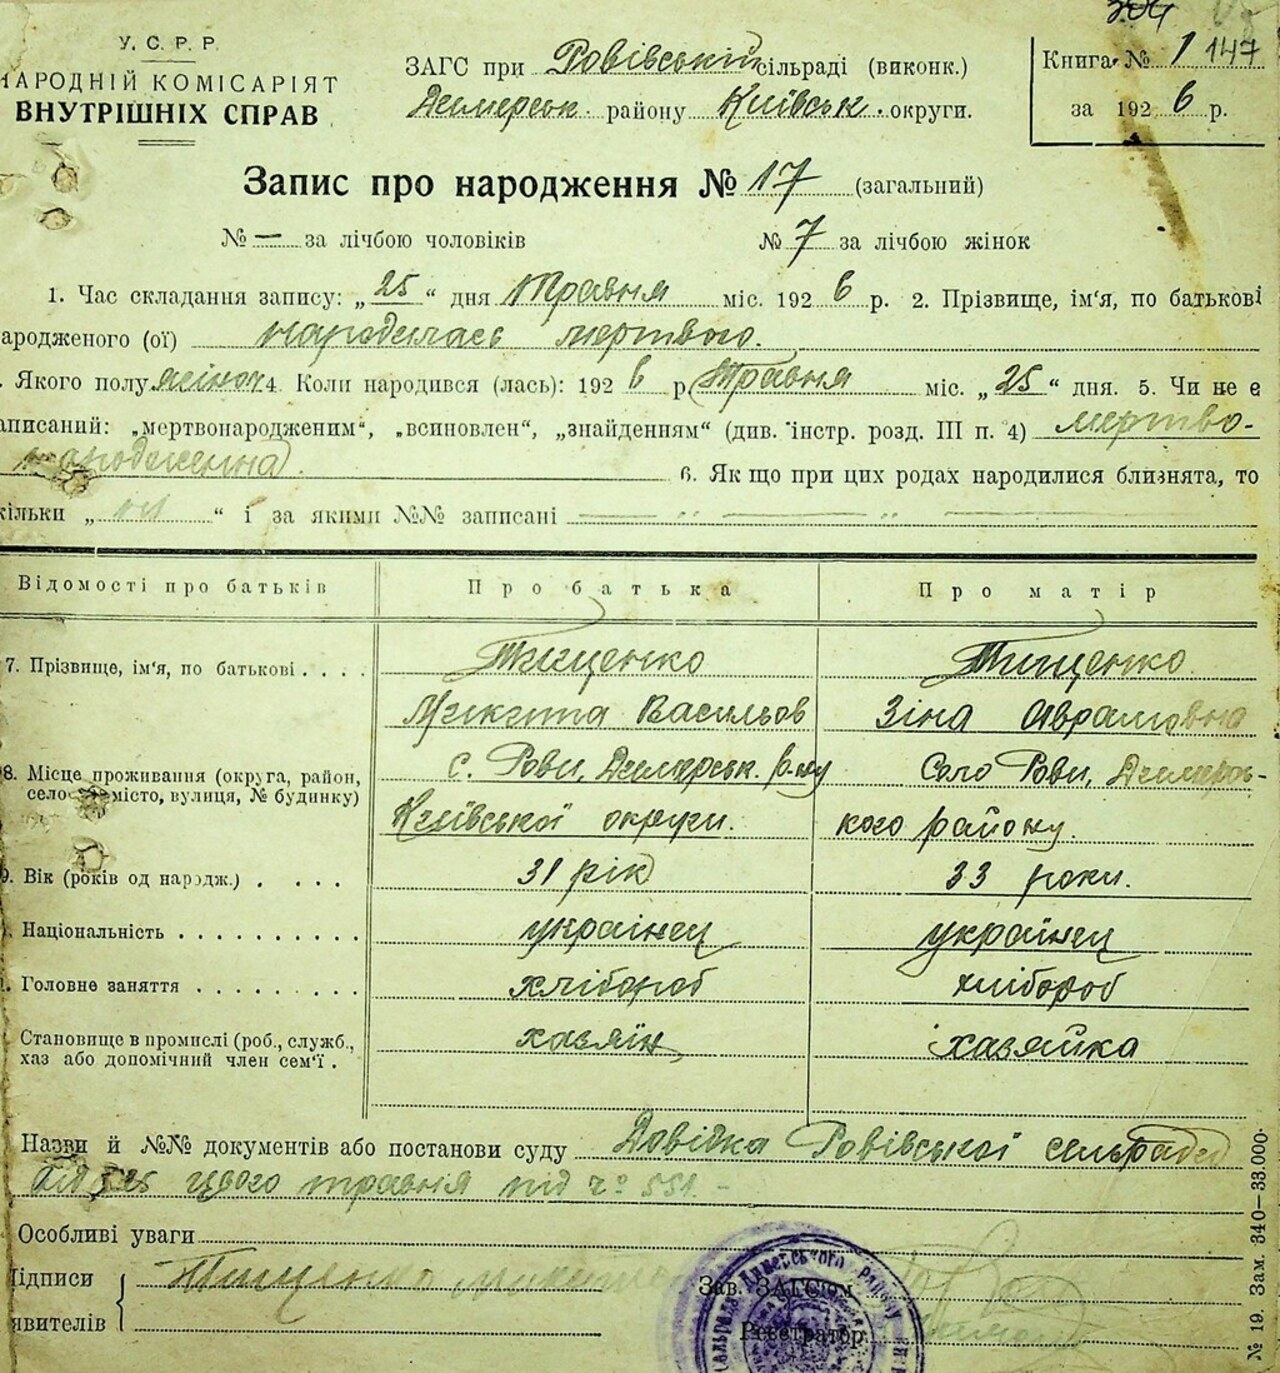 У. С. Р. Р.
НАРОДНІЙ КОМІСАРІЯТ
ВНУТРІШНІХ СПРАВ
ЗАГС при Ровівській сільраді (виконк.)
Димерськ. району Київськ. округи.
304
Книга № 1 147
за 1926 р.
Запис про народження № 17 (загальний)
№ — за лічбою чоловіків № 7 за лічбою жінок
1. Час складання запису: „25“ дня Травня міс. 1926 р. 2. Прізвище, ім'я, по батькові
ародженого (ої) народилась мертвою.
. Якого полу жіноч. 4. Коли народився (лась): 1926 р. Травня міс. „25“ дня. 5. Чи не є
аписаний: „мертвонародженим“, „всиновлен“, „знайденням“ (див. інстр. розд. III п. 4) мертво-
народженна.
6. Як що при цих родах народилися близнята, то
кільки „ “ і за якими №№ записані — „ — „ —
Відомості про батьків Про батька Про матір
7. Прізвище, ім'я, по батькові . . . . Тищенко Тищенко
Микита Васильов Зіна Аврамовна
8. Місце проживання (округа, район, с. Рови, Димерськ. р-ну Село Рови, Димерсь-
село місто, вулиця, № будинку) Київської округи. кого району.
9. Вік (років од народж.) . . . . 31 рік 33 роки.
. Національність . . . . . . . . . . українец українец
. Головне заняття . . . . . . . . . хлібороб хлібороб
Становище в промислі (роб., служб., хазяїн хазяйка
хаз або допомічний член сем'ї .
Назви й №№ документів або постанови суду Довідка Ровівської сельради
від 25 цього травня під ч° 551. -
Особливі уваги
Підписи Тищенко
явителів
Зав. ЗАГСом
Реєстратор
№ 19. Зам. 340—33.000.